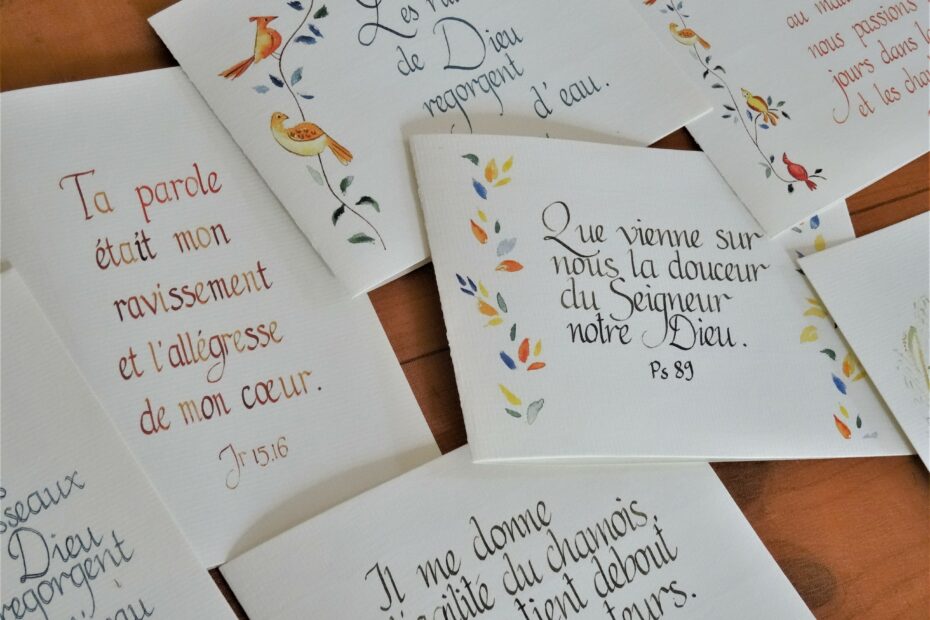 Les
de Dieu
regorgent
d'eau.
au
nous passions
jours dans
et les
Ta parole
était mon
ravissement
et l'allégresse
de mon cœur.
Jr 15.16
Que vienne sur
nous la douceur
du Seigneur
notre Dieu.
Ps 89
Il me donne
l'agilité du chamois,
tient debout
Dieu
regorgent